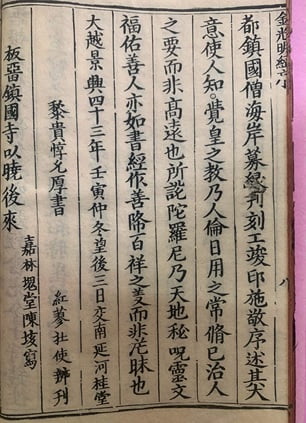 金光明經小
都鎮國僧海岸募緣刋刻工竣印施敬序述其大
意使人知覺皇之教乃人倫日用之常脩已治人
之要而非高遠也所説陀羅尼乃天地秘呪靈文
福佑善人亦如書經作善降百祥之義而非茫昧也
大越景興四十三年壬寅仲冬望後三日交南延河桂堂
黎貴惇允厚書
紅蓼社使辦刋
板畱鎮國寺以曉後來
嘉林堂陳堎寫
八